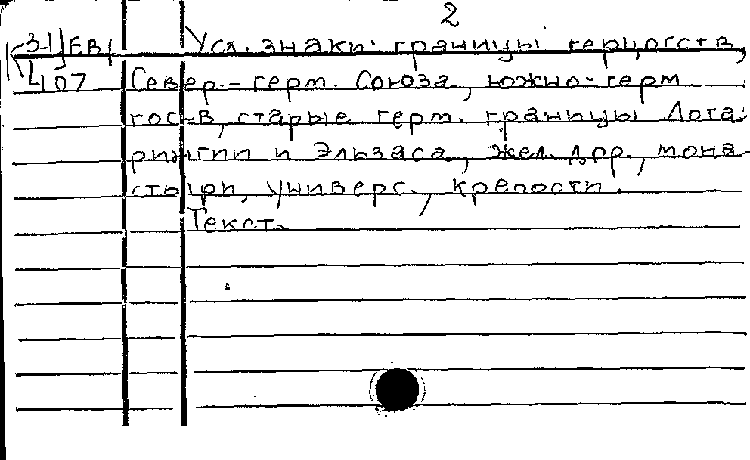 2
К 3-1/ЕВр Усл. знаки: границы герцогств,
4-107 Север.-герм. Союза, южно-герм
гос-в, старые герм. границы Лота-
рингии и Эльзаса, жел. дор., мона-
стыри, универс., крепости.
Текст.